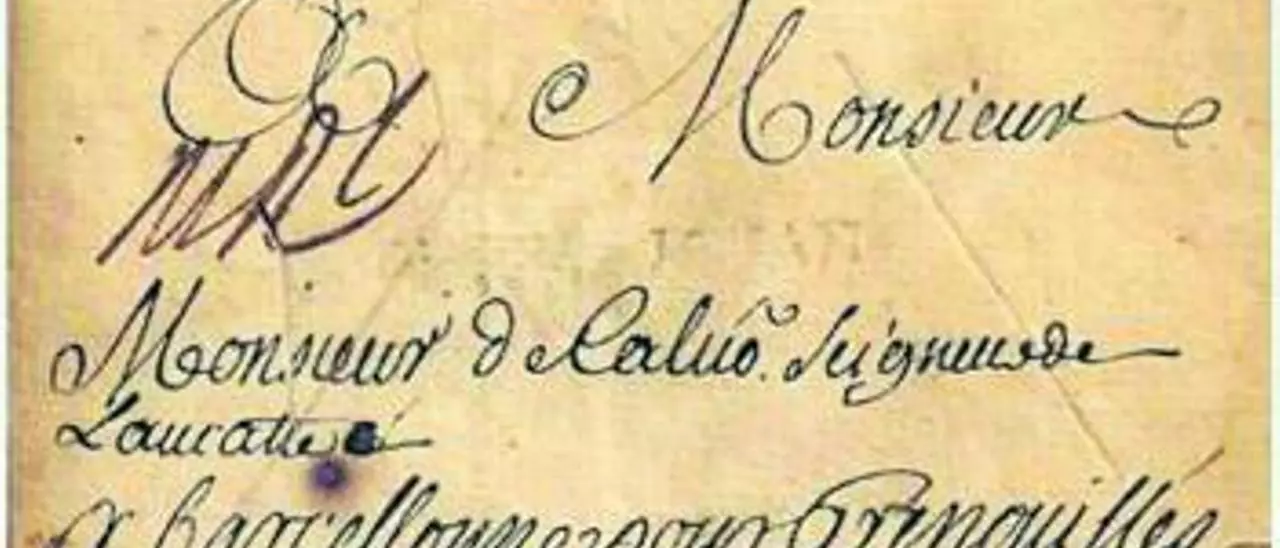 Monsieur
Monsieur d Calvo. Seigneur de
a Barcellonne pour Grenouilles